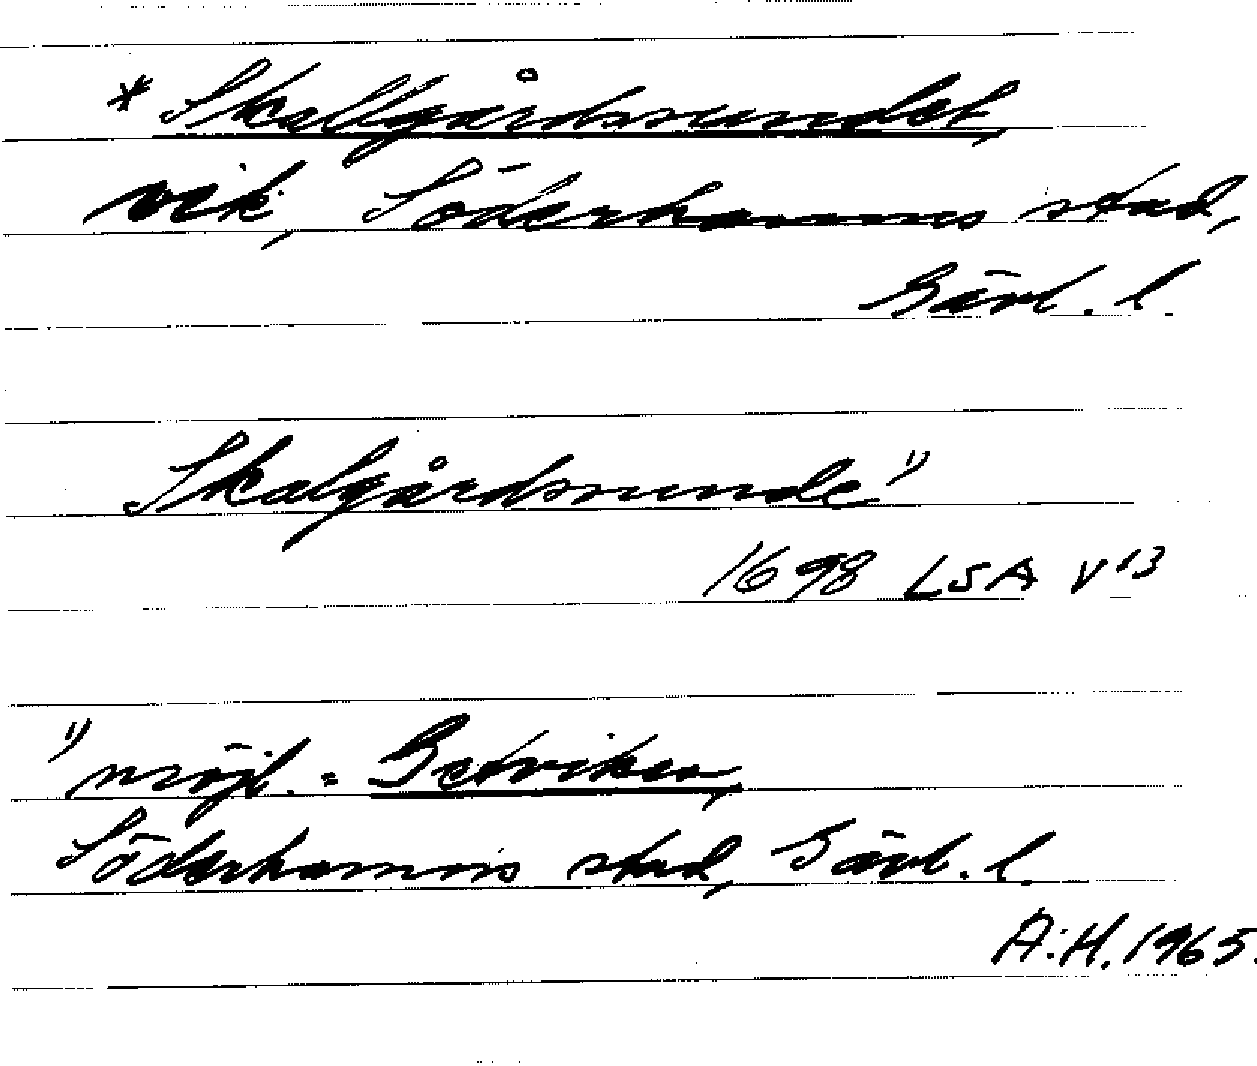 * Skallgårdssundet,
vik, Söderhamns stad,
Gävl. l.
Skalgårdssunde 1)
1698 LSA V13
1) möjl. = Getviken,
Söderhamns stad, Gävl. l.
A.H. 1965.